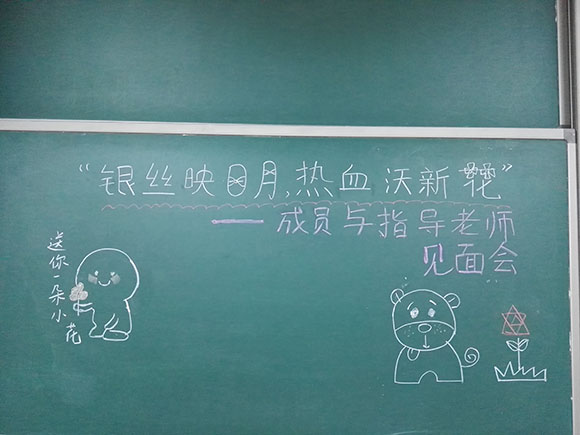 “银丝映日月,热血沃新花”
——成员与指导老师
见面会
送你一朵小花